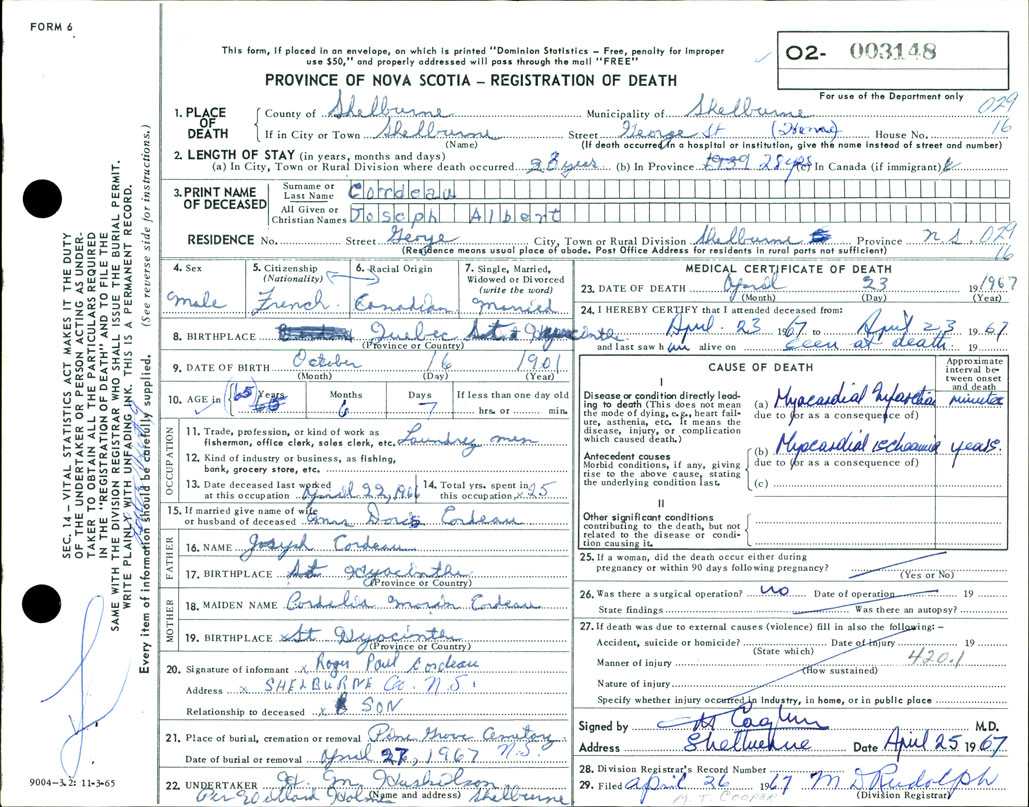 FORM 6
This form, if placed in an envelope, on which is printed "Dominion Statistics – Free, penalty for improper
use $50," and properly addressed will pass through the mail "FREE"
PROVINCE OF NOVA SCOTIA – REGISTRATION OF DEATH
O2- 003148
For use of the Department only
029
16
1. PLACE OF DEATH
County of Shelburne Municipality of Shelburne
If in City or Town Shelburne Street George St (Home) House No.
(Name) (If death occurred in a hospital or institution, give the name instead of street and number)
2. LENGTH OF STAY (in years, months and days)
(a) In City, Town or Rural Division where death occurred 28 years (b) In Province 1939 28 yrs (c) In Canada (if immigrant)
3. PRINT NAME OF DECEASED
Surname or Last Name Cordeau
All Given or Christian Names Joseph Albert
RESIDENCE No. Street George City, Town or Rural Division Shelburne Province N.S. 029
(Residence means usual place of abode. Post Office Address for residents in rural parts not sufficient) 16
4. Sex
Male
5. Citizenship (Nationality)
French
6. Racial Origin
Canadian
7. Single, Married, Widowed or Divorced (write the word)
Married
8. BIRTHPLACE Quebec St Hyacinthe
(Province or Country)
9. DATE OF BIRTH October 16 1901
(Month) (Day) (Year)
10. AGE in 65 Years 65 Months 6 Days 7 If less than one day old
hrs. or min.
OCCUPATION
11. Trade, profession, or kind of work as fisherman, office clerk, sales clerk, etc. Laundry men
12. Kind of industry or business, as fishing, bank, grocery store, etc.
13. Date deceased last worked at this occupation April 22, 1966
14. Total yrs. spent in this occupation x 25
15. If married give name of wife or husband of deceased Anna Doris Cordeau
FATHER
16. NAME Joseph Cordeau
17. BIRTHPLACE St Hyacinthe
(Province or Country)
MOTHER
18. MAIDEN NAME Cordelia Morin Cordeau
19. BIRTHPLACE x St Hyacinthe
(Province or Country)
20. Signature of informant x Roger Paul Cordeau
Address x SHELBURNE Co. N.S.
Relationship to deceased x SON
21. Place of burial, cremation or removal Pine Grove Cemetery
Date of burial or removal April 27, 1967 N.S.
22. UNDERTAKER
(Name and address) Shelburne
MEDICAL CERTIFICATE OF DEATH
23. DATE OF DEATH April 23 1967
(Month) (Day) (Year)
24. I HEREBY CERTIFY that I attended deceased from:
April 23 1967 to April 23 1967
and last saw him alive on seen at death 19
CAUSE OF DEATH
Approximate interval between onset and death
I
Disease or condition directly leading to death (This does not mean the mode of dying, e.g., heart failure, asthenia, etc. It means the disease, injury, or complication which caused death.)
(a) Myocardial Infarction minutes
due to (or as a consequence of)
Antecedent causes
Morbid conditions, if any, giving rise to the above cause, stating the underlying condition last.
(b) Myocardial ischaemia years
due to (or as a consequence of)
(c)
II
Other significant conditions contributing to the death, but not related to the disease or condition causing it.
25. If a woman, did the death occur either during pregnancy or within 90 days following pregnancy?
(Yes or No)
26. Was there a surgical operation? no Date of operation 19
State findings Was there an autopsy?
27. If death was due to external causes (violence) fill in also the following: –
Accident, suicide or homicide? Date of injury 19
(State which)
Manner of injury 420.1
(How sustained)
Nature of injury
Specify whether injury occurred in industry, in home, or in public place
Signed by M.D.
Address Shelburne Date April 25 1967
28. Division Registrar's Record Number
29. Filed April 26 1967 M D Rudolph
(Division Registrar)
A. T. COOPER
SEC. 14 – VITAL STATISTICS ACT MAKES IT THE DUTY
OF THE UNDERTAKER OR PERSON ACTING AS UNDER-
TAKER TO OBTAIN ALL THE PARTICULARS REQUIRED
IN THE "REGISTRATION OF DEATH" AND TO FILE THE
SAME WITH THE DIVISION REGISTRAR WHO SHALL ISSUE THE BURIAL PERMIT.
WRITE PLAINLY WITH UNFADING INK. THIS IS A PERMANENT RECORD.
Every item of information should be carefully supplied. (See reverse side for instructions.)
9004-3.2: 11-3-65